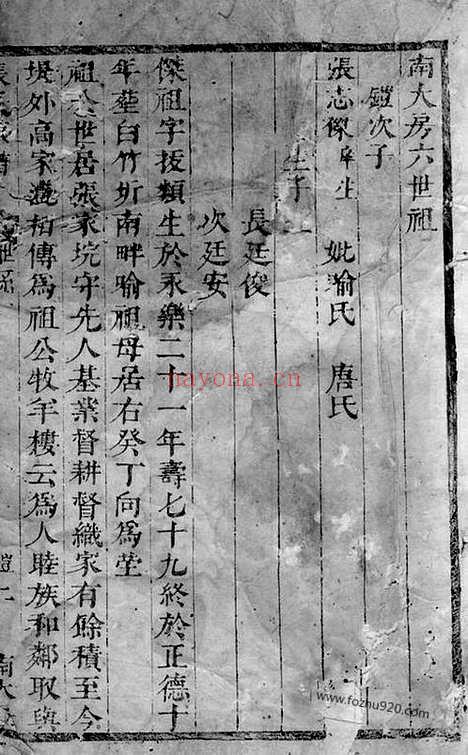 南大房六世祖
鎧次子
張志傑庠生 妣喻氏 唐氏
生子二
長廷俊
次廷安
傑祖字拔類生於永樂二十一年壽七十九終於正德十
年塟白竹圻南畔喻祖母居右癸丁向為塋
祖公世居張家垸守先人基業督耕督織家有餘積至今
堤外高家灘栢傳為祖公牧羊樓云為人睦族和鄰取與
鎧二
南大房
nayona.cn
www.fozhu920.com